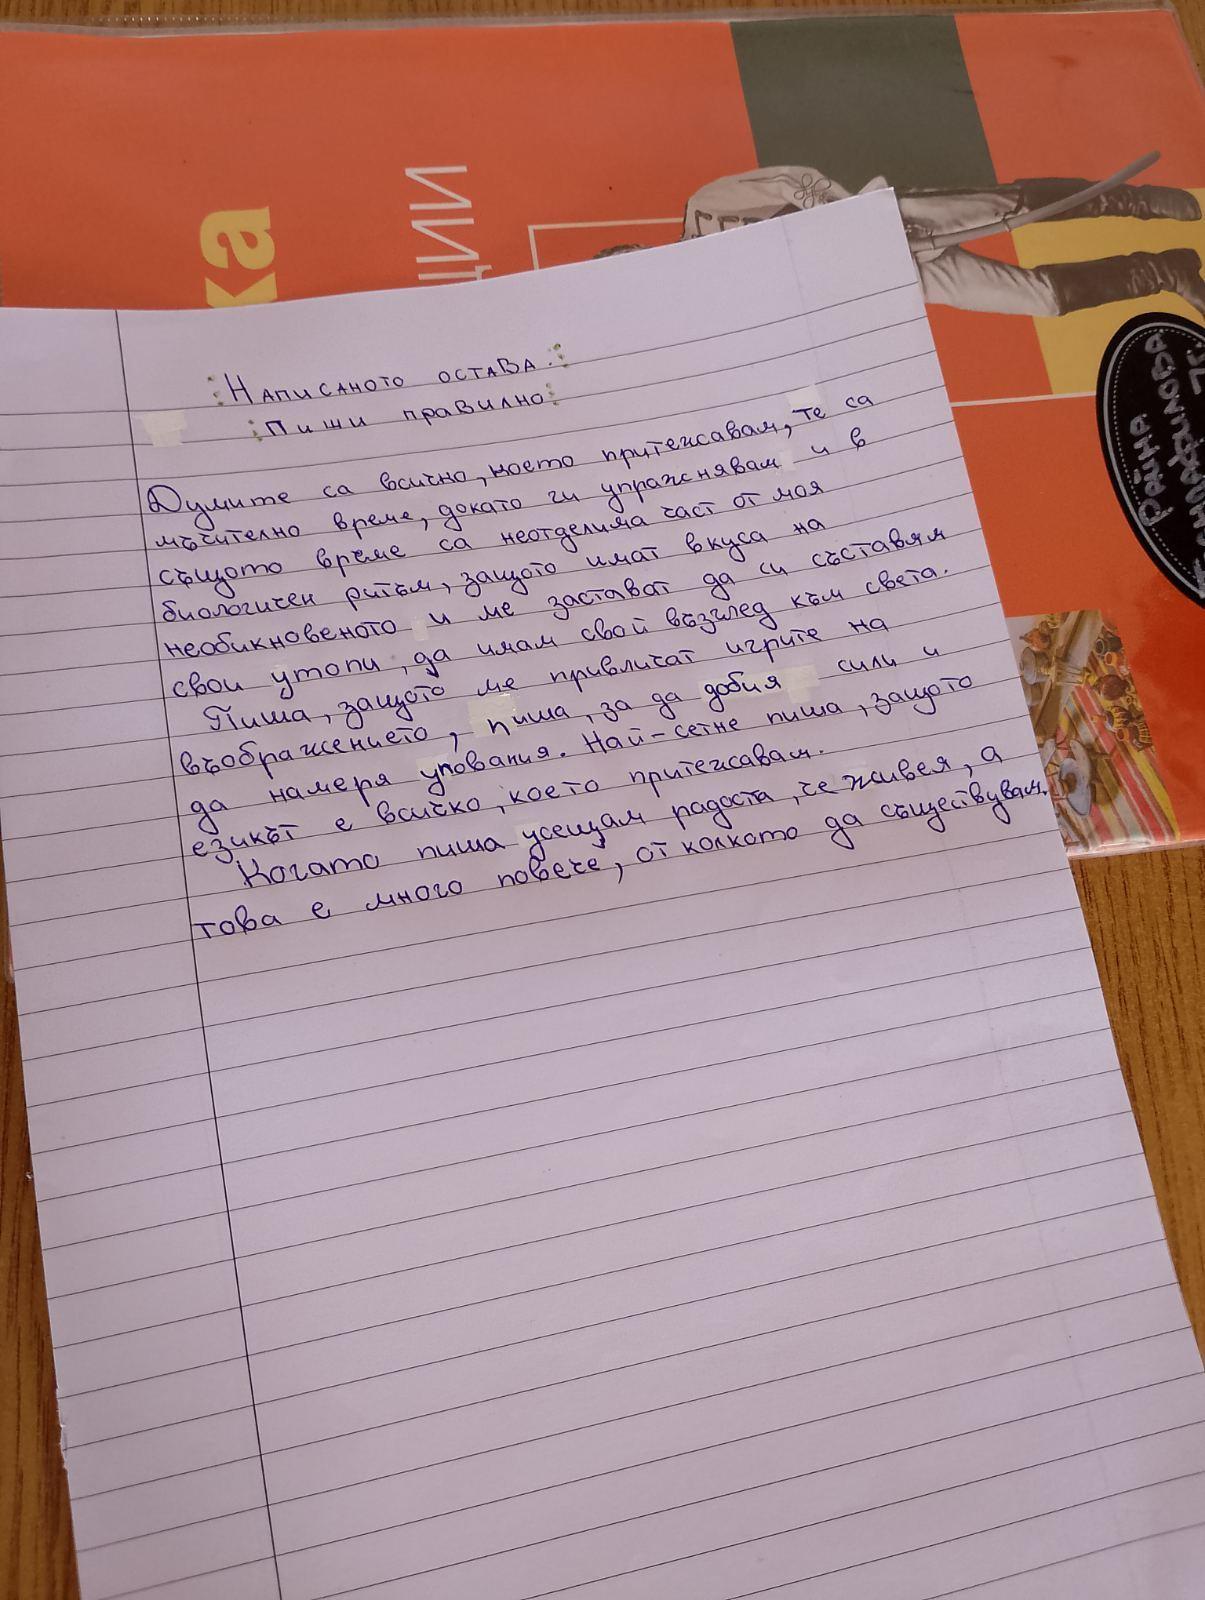 ка
ЦИИ
Написаното остава.
Пиши правилно
Думите са всичко, което притежавам, те са
мъчително време, докато ги упражнявам и в
същото време са неотделима част от моя
биологичен ритъм, защото имат вкуса на
необикновеното и ме заставят да си съставям
свои утопи, да имам свой възглед към света.
Пиша, защото ме привличат игрите на
въображението, пиша, за да добия сили и
да намеря упования. Най-сетне пиша, защото
езикът е всичко, което притежавам.
Когато пиша усещам радоста, че живея, а
това е много повече, от колкото да съществувам.
РАЙНА
7Б